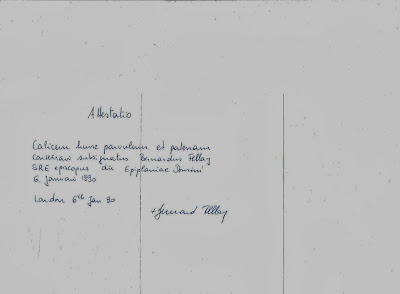 Attestatio
Calicem hunc parvulum et patenam
consecravi subsignatus Bernardus Fellay
SRE episcopus die Epiphaniae Domini
6. Januarii 1990
London 6th Jan 90
+ Bernard Fellay